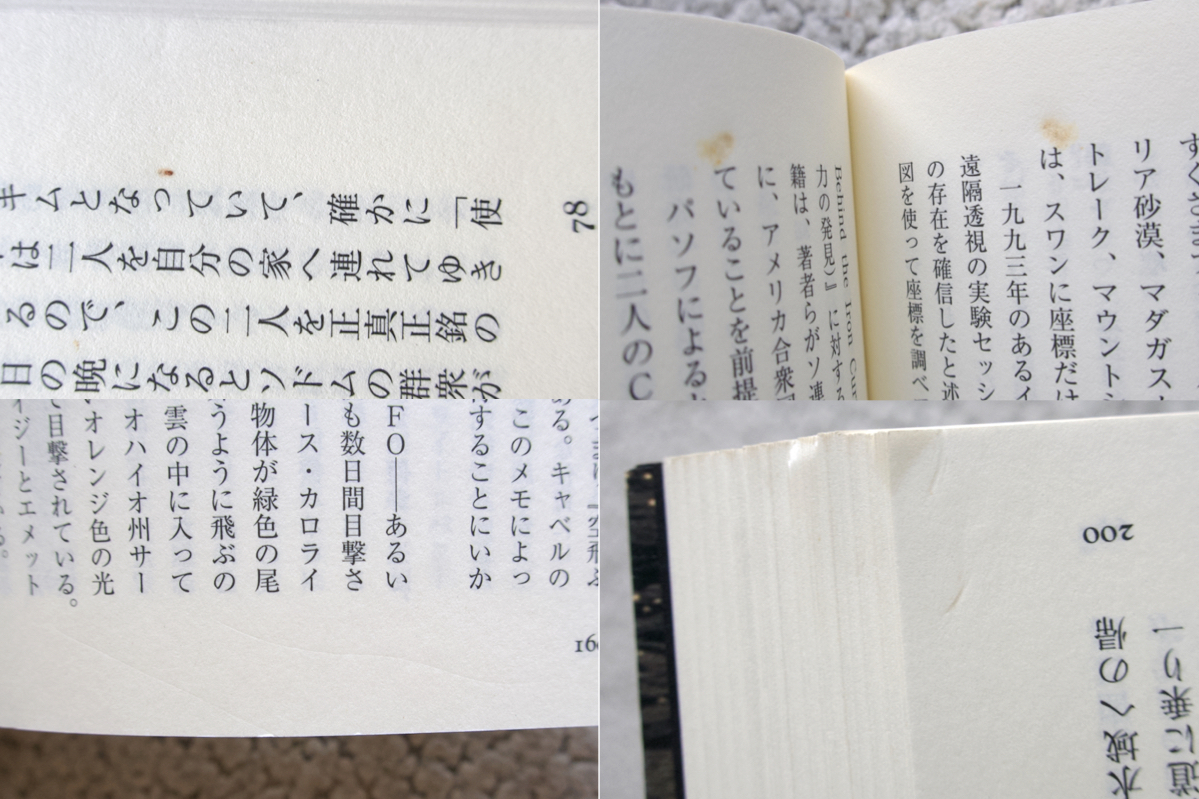 78
キムとなっていて、確かに「使
は二人を自分の家へ連れてゆき
るので、この二人を正真正銘の
日の晩になるとソドムの群衆が
リア砂漠、マダガス
トレーク、マウント
は、スワンに座標だけ
一九九三年のあるイ
遠隔透視の実験セッシ
の存在を確信したと述
図を使って座標を調べ
Behind the Iron Cur
力の発見）』に対する
籍は、著者らがソ連
に、アメリカ合衆国
ていることを前提
パソフによる
もとに二人のC
ある。キャベルの
このメモによっ
することにいか
FO――あるい
も数日間目撃さ
ース・カロライ
物体が緑色の尾
うように飛ぶの
雲の中に入って
オハイオ州サー
オレンジ色の光
で目撃されている。
イジーとエメット
200
水域への帰
道に乗り一